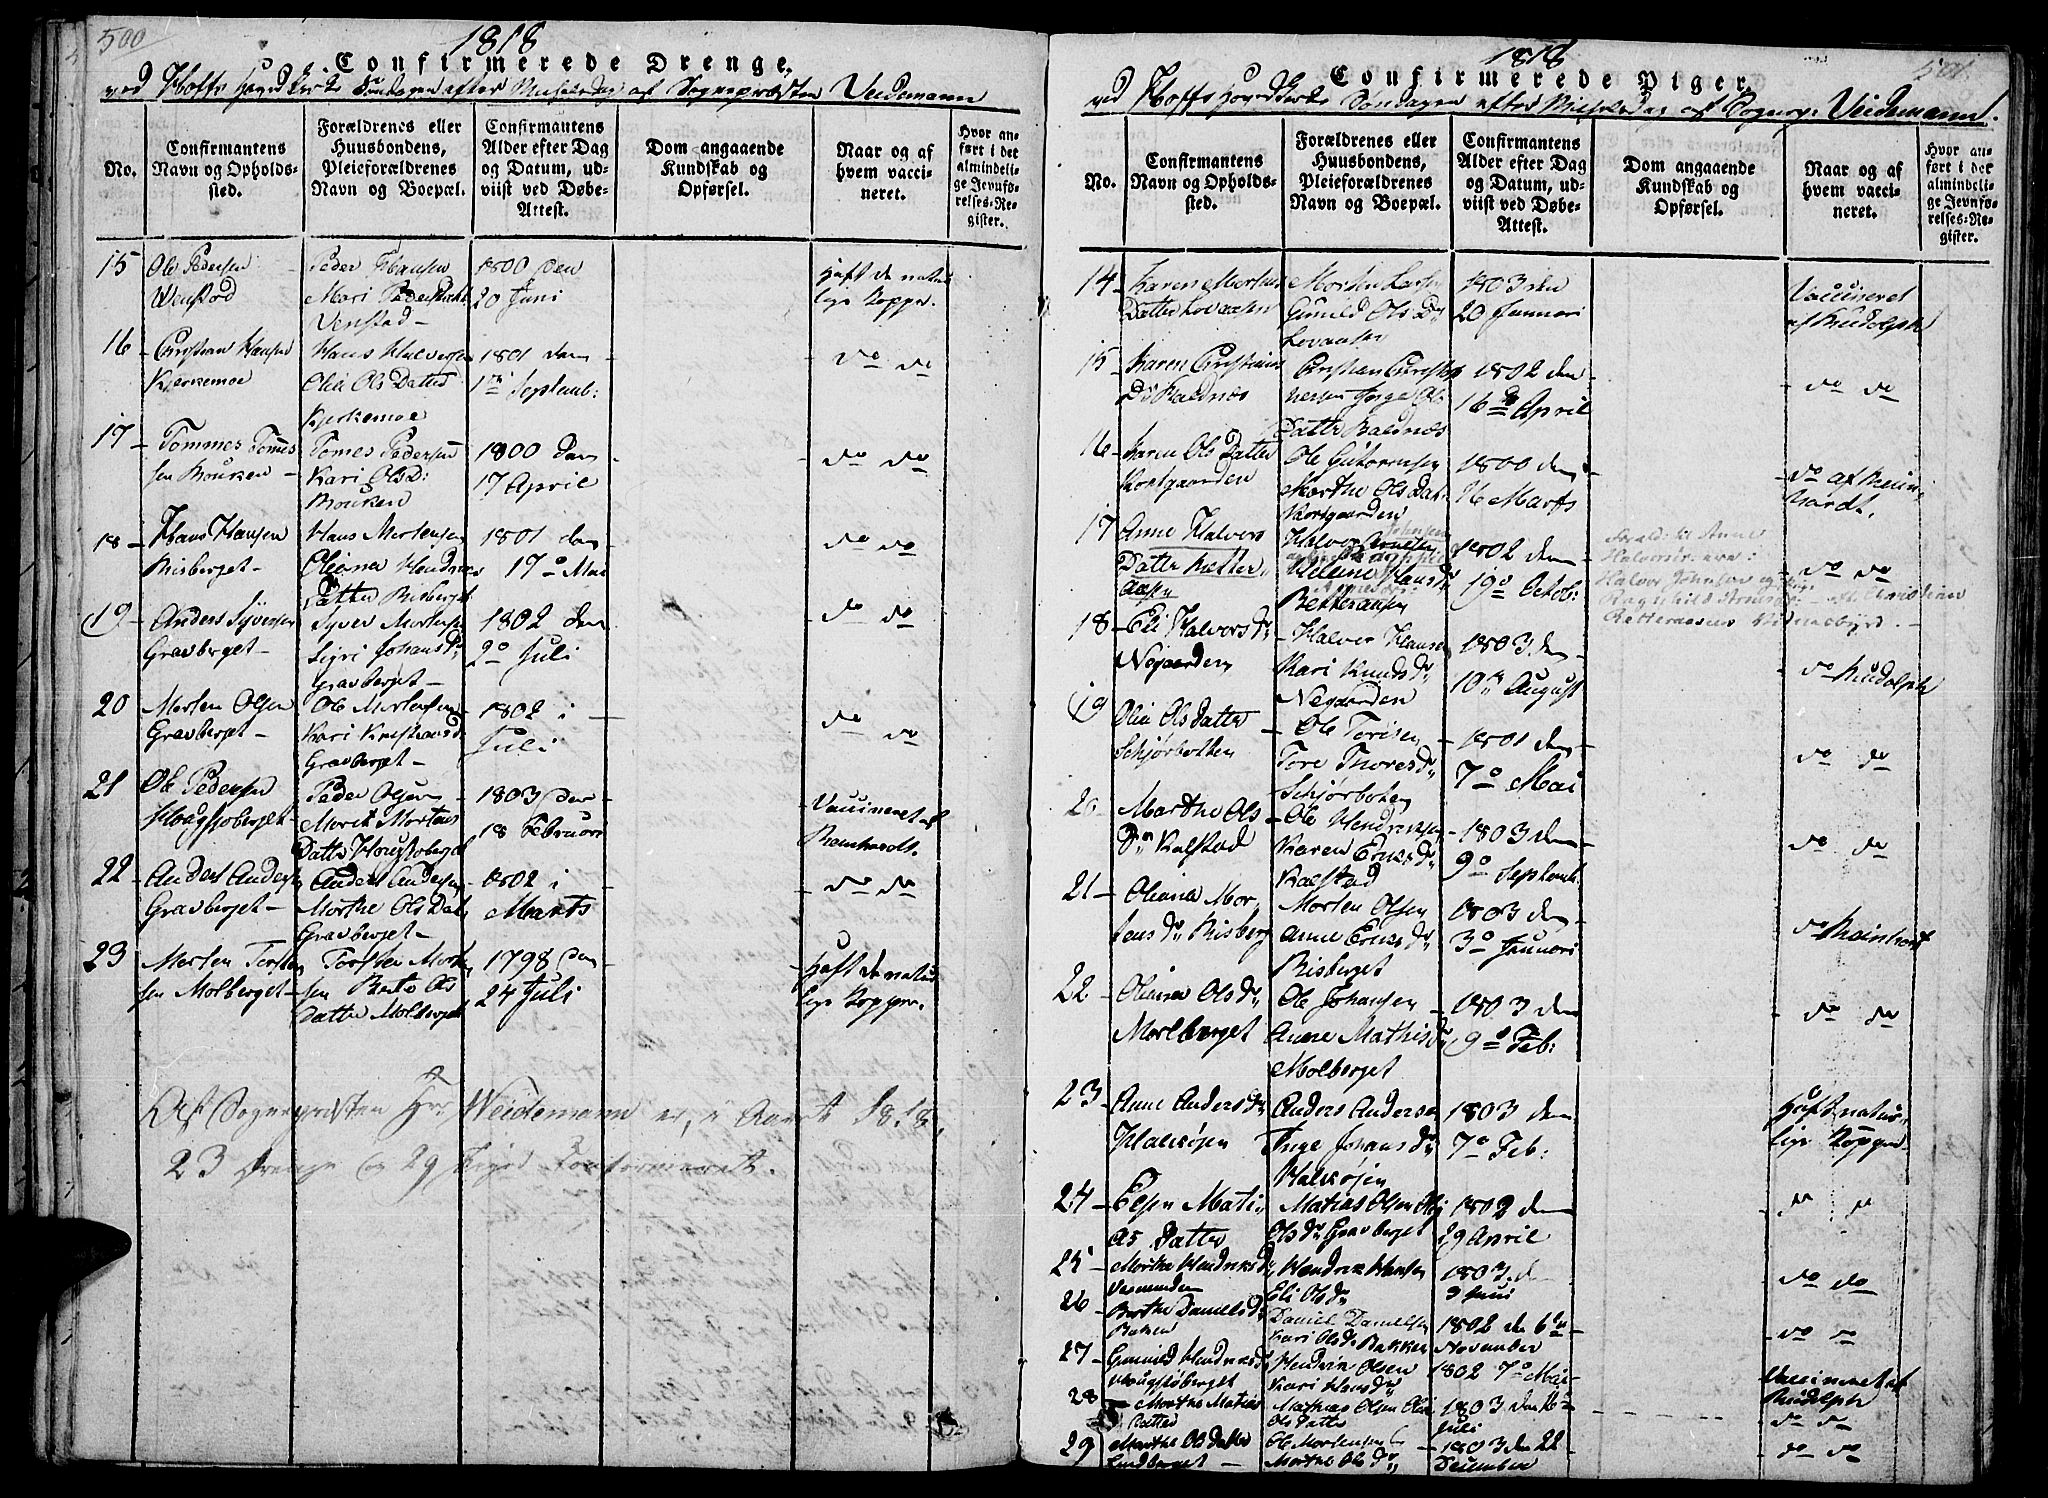 500
1818
Confirmerede Drenge,
ved Hoffs Hovedkirke Søndagen efter Michelsdag af Sognepræsten Veidemann
No.
Confirmantens Navn og Opholdssted.
Forældrenes eller Huusbondens, Pleieforældrenes Navn og Boepæl.
Confirmantens Alder efter Dag og Datum, udviist ved Døbe-Attest.
Dom angaaende Kundskab og Opførsel.
Naar og af hvem vaccineret.
Hvor anført i det almindelige Jevnførelses-Register.
15
Ole Pedersen
Wenstad
Peder Hansen
Mari Peders
Venstad
1800 den
20 Juni
Haft de natur
lige Kopper.
16
Christian Hansen
Kjerkemoe
Hans Halvorsen
Olia Ols Datter
Kjerkemoe
1801 den
1te Septemb:
do do
17
Tommes Tomes
sen Brouken
Tomes Pedersen
Kari Ols D:
Brouken
1800 den
17 April
do do
18
Hans Hansen
Risberget
Hans Mortensen
Oleana Hendriks
Datter Risberget
1801 den
17o Mai
do do
19
Anders Syversen
Gravberget
Syver Mortens
Sigri Johans D
Gravberget
1802 den
2o Juli
do do
20
Morten Olsen
Gravberget
Ole Mortensen
Kari Kristians D
Gravberget
1802 i
Juli
do do
21
Ole Pedersen
Hougsjøberget
Peder Olsen
Morit Mortens
Datter Hougsjøberget
1803 den
18 Februari
Vaccineret af
Reinhardt.
22
Anders Andersen
Gravberget
Anders Andersen
Morthe Ols Dat
Gravberget
1802 i
Marts
do do
23
Morten Torsten
sen Molberget
Torsten Morten
sen Berte Ols
Datter Molberget
1798 den
24 Juli
Haft de natur
lige Kopper.
Af Sognepresten Hr Weidemann er, i Aaret 1818,
23 Drenge og 29 Piger Konfirmeret.
501
1818
Confirmerede Piger,
ved Hoffs Hovedkirke Søndagen efter Michelsdag af Sognepr. Veidemann.
No.
Confirmantens Navn og Opholdssted.
Forældrenes eller Huusbondens, Pleieforældrenes Navn og Boepæl.
Confirmantens Alder efter Dag og Datum, udviist ved Døbe-Attest.
Dom angaaende Kundskab og Opførsel.
Naar og af hvem vaccineret.
Hvor anført i det almindelige Jevnførelses-Register.
14
Karen Mortens
Datter Lovaasen
Morten Larsen
Gunild Ols D
Lovaasen
1803 den
20 Januari
Vaccineret
af Rudolph
15
Karen Christians
D Baldnæs
Christian Christop
hersen Inger Ols
Datter Baldnæs
1802 den
16de April
do do
16
Karen Ols Datter
Kortgaarden
Ole Gutormsen
Marthe Ols Dat
Kortgaarden
1800 den
26 Marts
do af Rein
hardt.
17
Anne Halvors
Datter Retter
aasen
Halvor
Johnsen
Helene Hans D
Retteraasen
1802 den
19o Octob:
Foræld: til Anne
Halvorsdr. ere:
Halvor Johnsen og
Ragnhild Arnesd:
Retteraasen
do do
18
Eli Halvors D
Nogaarden
Halvor Hansen
Kari Knuds D
Negaarden
1803 den
10de August
do Rudolph
19
Olia Ols Datter
Schjørbotten
Ole Torisen
Tore Thores D
Schjørboten
1801 den
7o Mai
do do
20
Marthe Ols
D Kalstad
Ole Hendriksen
Karen Eriks D
Kalstad
1803 den
9o Septemb.
do do
21
Oleana Mor
tens D Risberg
Morten Olsen
Anne Eriks D
Risberget
1803 den
3o Januari
do Reinhart
22
Oleana Ols D
Morlberget
Ole Johansen
Anne Mathis D
Molberget
1803 den
9o Feb:
do do
23
Anne Anders D
Halsøjen
Anders Andersen
Inge Johans D
Halsøjen
1803 den
7o Feb:
Haft natur
lige Kopper.
24
Elsen Mati
as Datter
Mathias Olsen
Ols D Gravberget
1802 den
29 April
25
Morthe Hendriks D
Hendrik Hansen
Eli Ols D
1803 den
9 Juni
do do
26
Berthe Daniels D
Baken
Daniel Danielsen
Kari Ols D Bakken
1802 den 6te
November
do do
27
Gunnild Hendriks D
Hougsjøberget
Hendrik Olsen
Kari Hans D
1802 7o Mai
Vaccineret af
Rudolph
28
Morthe Matias
Datter
Mathias Olsen
Ols Datter
1803 den
Juli
do do
29
Marthe Ols Datter
Lindberget
Ole Mortensen
Morthe Ols D
1803 den 22
December
do do